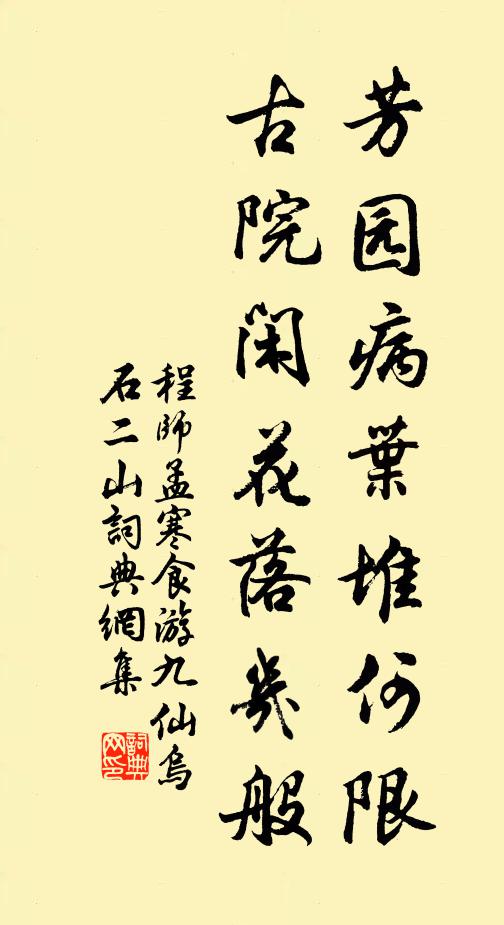 芳园病葉堆何限
古院闲花落幾般
程師孟寒食游九仙烏
石二山詞典網集
詞典网印